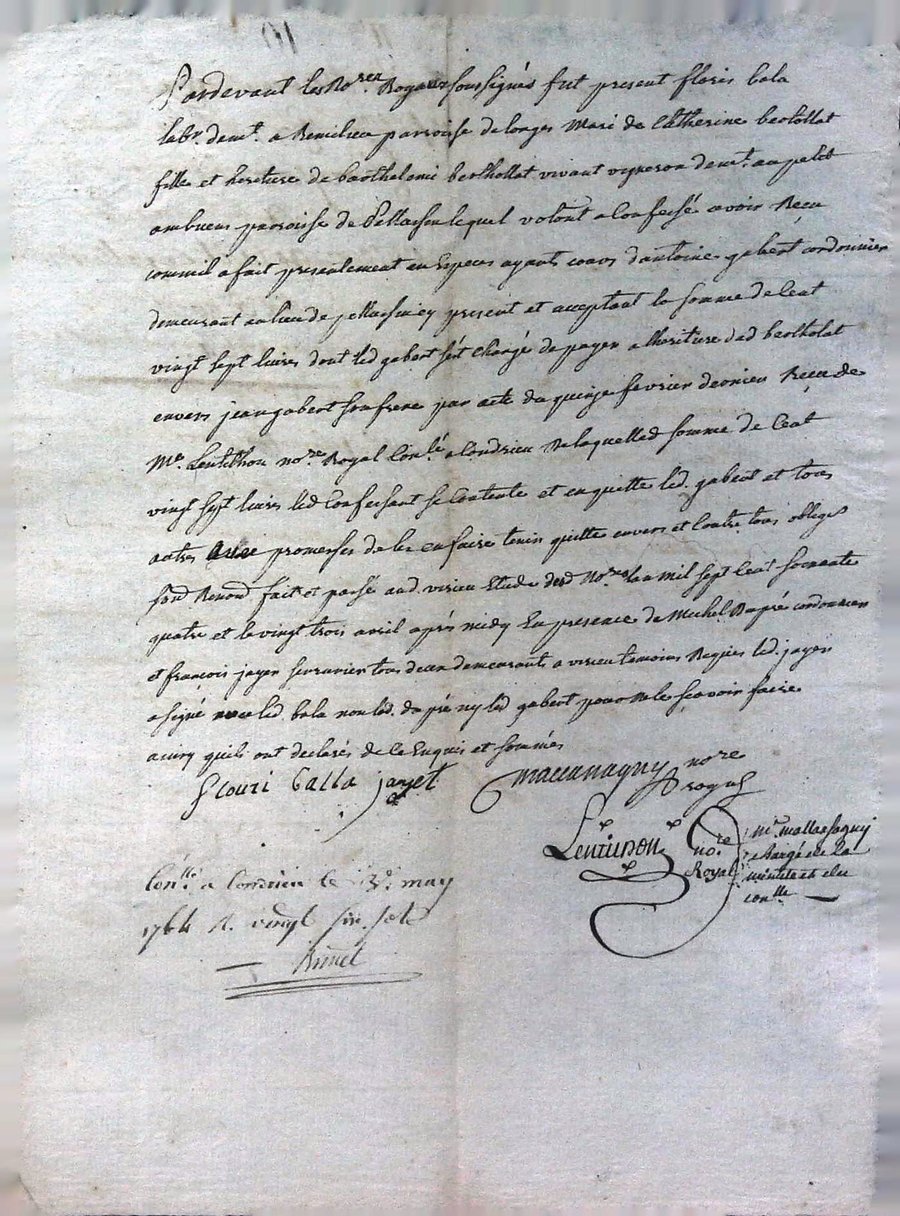 Pardevant les No.res Royaux soussignés fut present floris bala
labr. demt. a Remilieu parroisse de longes mari de Catherine bertollat
fille et heritiere de barthelemi berthollat vivant vigneron demt. au petit
ambuens paroisse de Pellussin lequel volont. a Confessé avoir Receu
comme il a fait presentement en Especes ayants cours d'antoine gabert cordonnier
demeurant au lieu de present et acceptant la somme de Cent
vingt sept livres dont led gabert s'est chargé de payer a lheritiere dud bertholat
envers jean gabert son frere par acte du quinze fevrier dernier Receu de
Me. Lentithon nore. Royal Conlé. a Condrieu De laquelle d somme de Cent
vingt sept livres led Confessant se Contente et en quitte led. gabert et tous
autres avec promesses de les en faire tenir quitte envers et Contre tous obligs
soud Renond fait et passé aud. virieu Etude desd No.res lan mil sept Cent soixante
quatre et le vingt trois avril après midy En presence de Michel Dupré cordonnier
et françois jayen serrurier tous deux demeurants a virieu temoins Requis led. jayen
a signé avec led bala non led. dupré ny led gabert pour ne le sçavoir faire
ainsy quils ont declarés de Ce Enquis et sommés
flouri Balla jayet nore
royal
Lentithon
nore
Royal
chargé de la
minute et du
conlle
Conllé a Condrieu le 3e. may
1764 R. vingt six sols